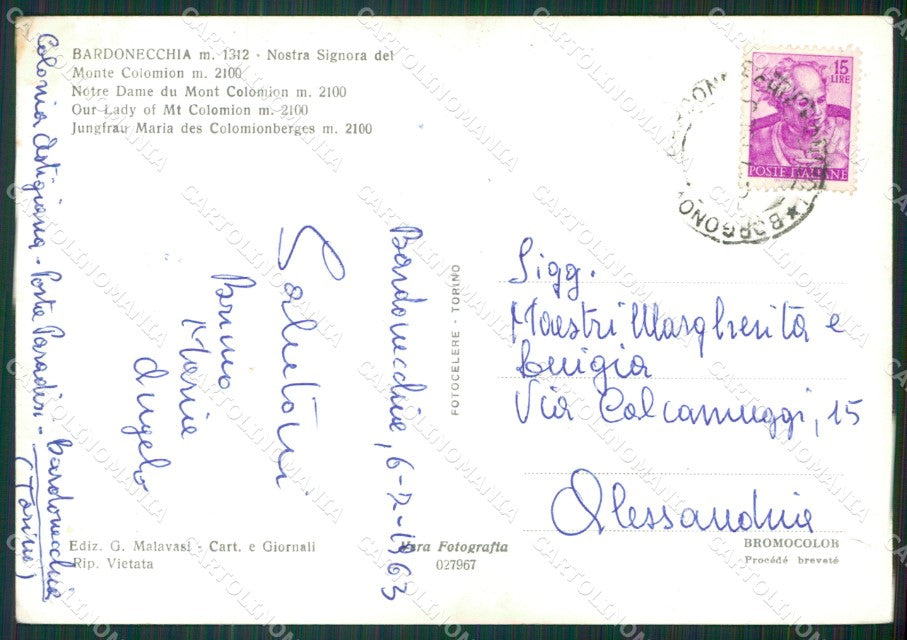 BARDONECCHIA m. 1312 - Nostra Signora del
Monte Colomion m. 2100
Nôtre Dame du Mont Colomion m. 2100
Our Lady of Mt Colomion m. 2100
Jungfrau Maria des Colomionberges m. 2100
Colonia Astigiana - Porta Paradisi - Bardonecchia
(Torino)
15
LIRE
POSTE ITALIANE
Bardonecchia, 6-7-1963
Salutoni
Bruno
Maria
Angelo
FOTOCELERE - TORINO
Sigg.
Maestri Margherita e
Luigia
Via Calcamuggi, 15
Alessandria
Ediz. G. Malavasi - Cart. e Giornali
Rip. Vietata
Vera Fotografia
027967
BROMOCOLOR
Procédé breveté
CARTOLINOMANIA